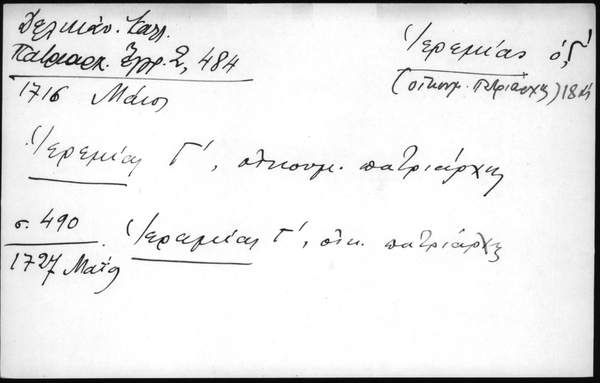 Δελικάν. Καλλ.
Πατριαρχ. Έγγρ. 2, 484
1716 Μάιος
Ἱερεμίας ὁ Γ'
(οἰκουμ. Πατριάρχης) 18
Ἱερεμίας Γ', οἰκουμ. πατριάρχης
σ. 490
1727 Μαΐο
Ἱερεμίας Γ', οἰκ. πατριάρχης